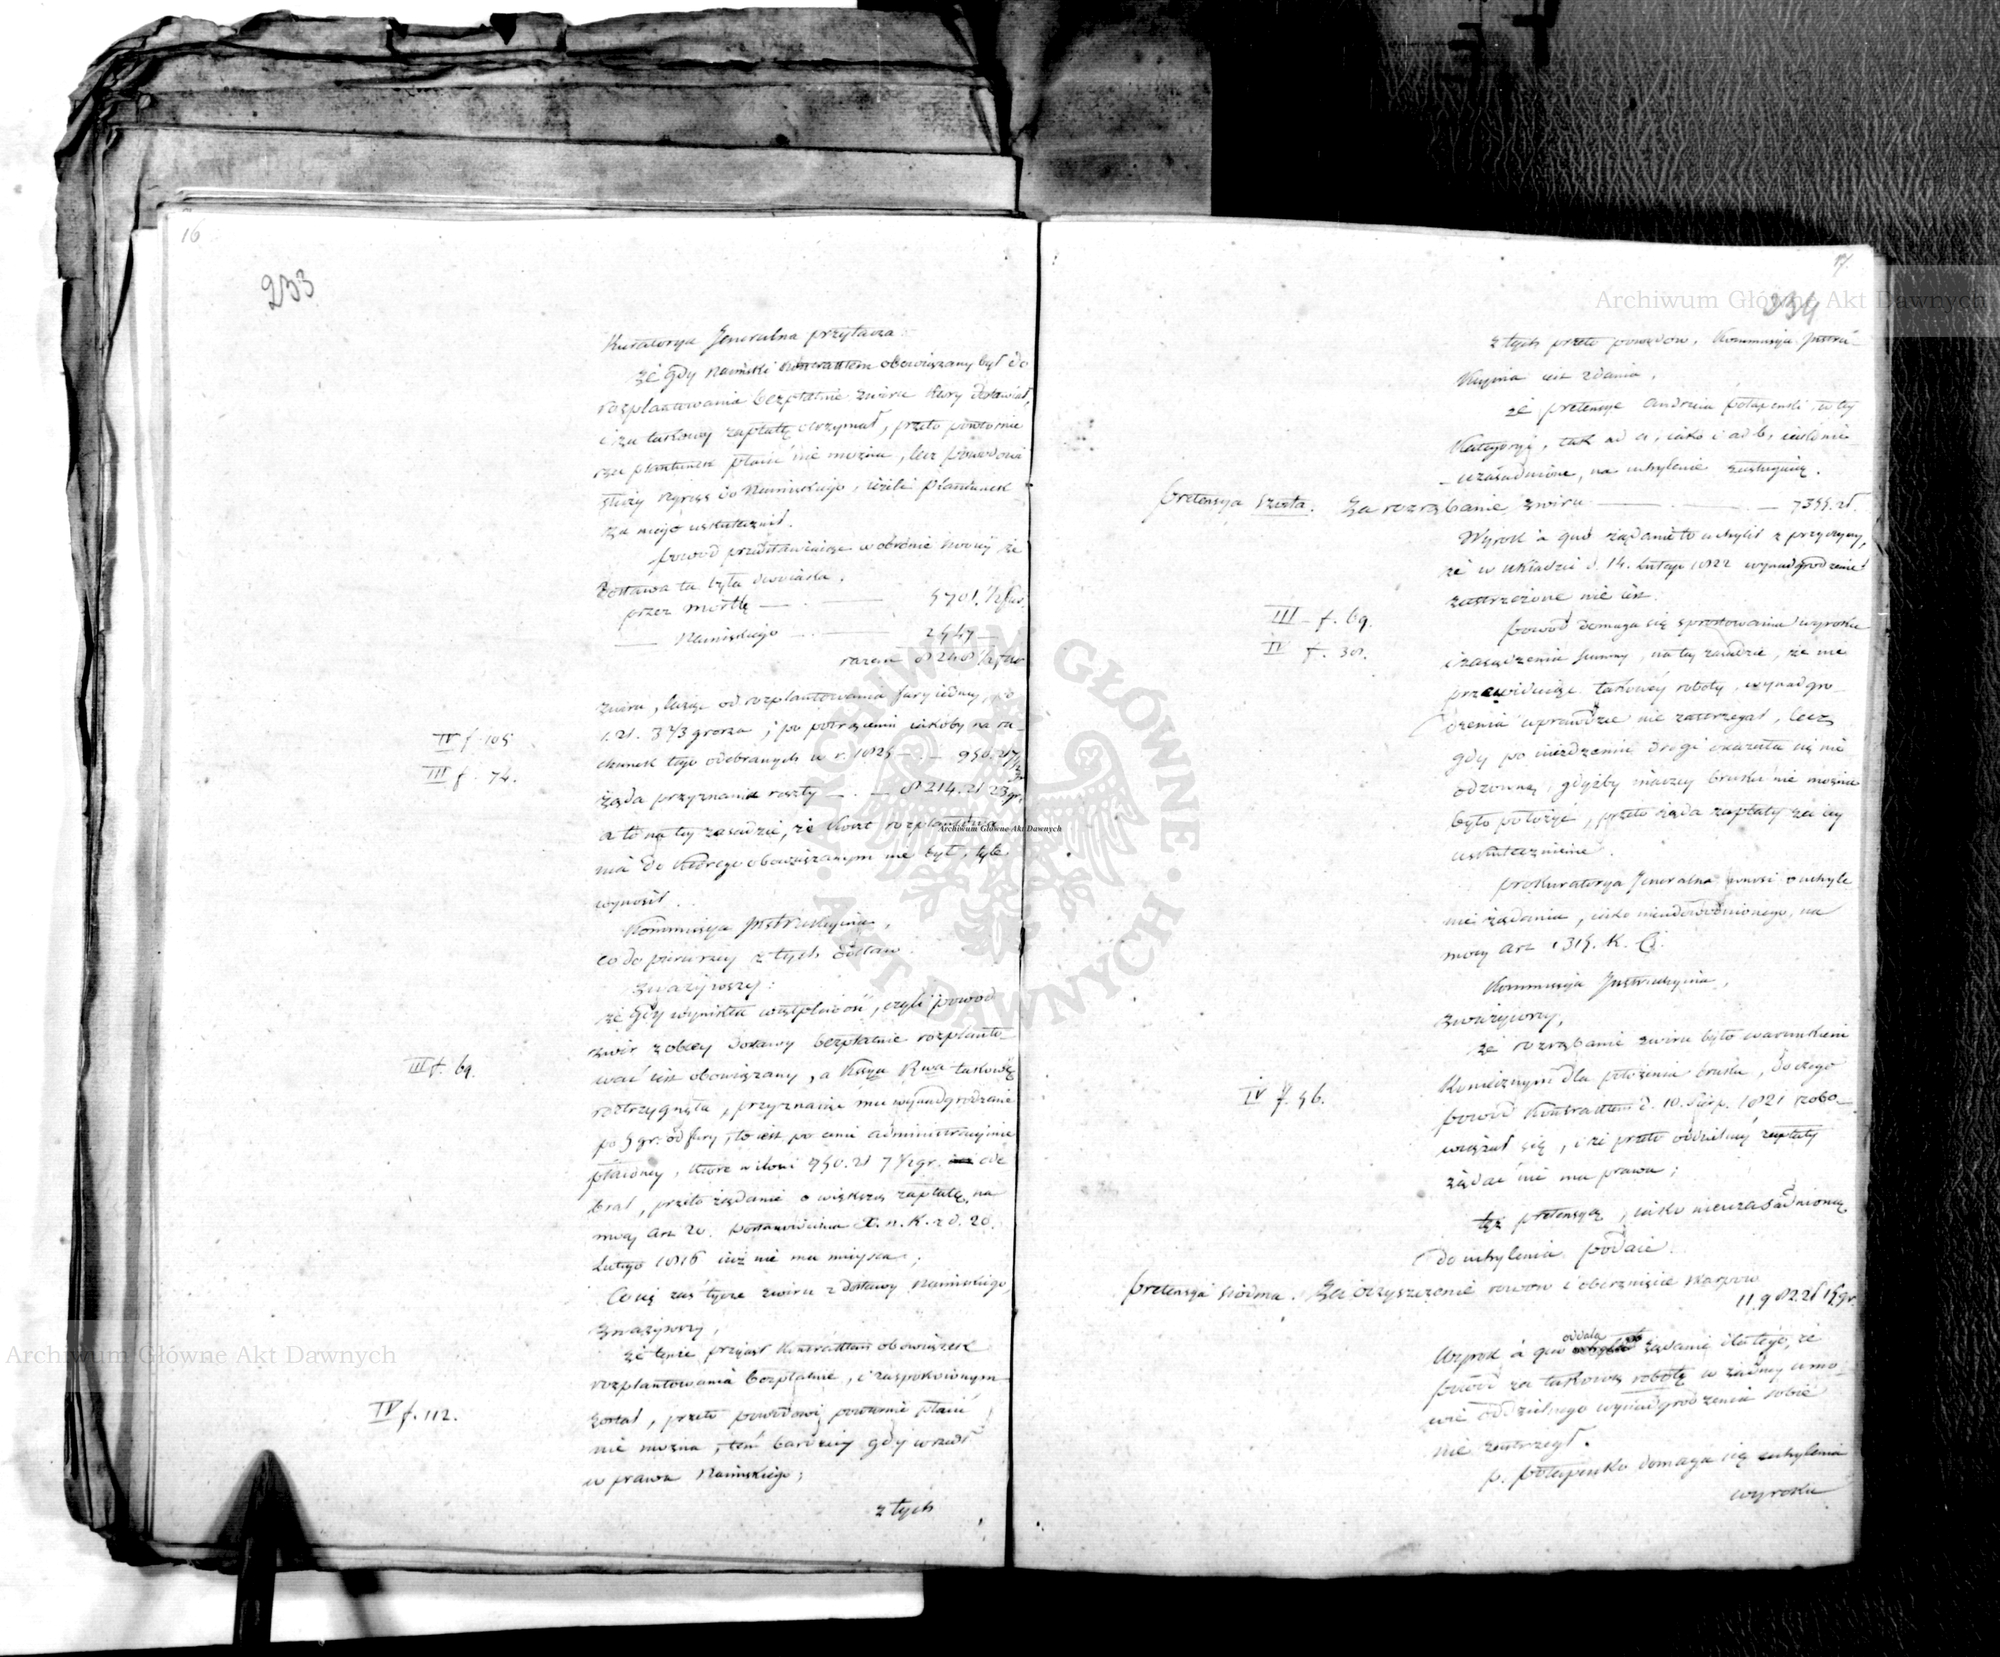 16
233
Kuratorya Jeneralna przytacza:
że gdy Namiński kontraktem obowiązany był do
rozplantowania bezpłatnie żwiru który dostawiał,
i za takowy zapłatę otrzymał, przeto powtórnie
za plantunek płacić nie można, lecz powodowi
służy regres do Namińskiego, jeżeli plantunek
za niego uskutecznił.
powód przedstawiając w obronie swoiey że
Dostawa ta była dwoiaka,
przez Mortkę — . — 5701. 1/2 fur.
— Namińskiego — . — 2547 —
razem 8248 1/2 fur
żwiru, licząc od rozplantowania fury iedney, po
IV f. 105
1. zł. 3 1/3 grosza; po potrąceniu iakoby na ra-
chunek tego odebranych w r. 1825 — . — 950. zł 7 1/2 gr
III f. 74.
żąda przyznania reszty — . — 8214. zł 23 gr,
a to na tey zasadzie, że koszt rozplantowa
nia do którego obowiązanym nie był, tyle
wynosił.
Kommissya Instrukcyina,
co do pierwszey z tych dostaw.
zważywszy:
że gdy wynikła wątpliwość, czyli powód
żwir z obcey dostawy bezpłatnie rozplanto-
III f. 69.
wać iest obowiązany, a Kssya Rwa takową
roztrzygnęła, przyznaiąc mu wynadgrodzenie
po 5 gr. od fury, to iest po cenie administracyinie
płaconey, które w ilości 950. zł 7 1/2 gr. ode
brał, przeto żądanie o większą zapłatę, na
mocy Art. 20. Postanowienia X. N. K. z d. 20.
Lutego 1816 iuż nie ma mieysca;
Co się zaś tycze żwiru z dostawy Namińskiego,
zważywszy,
że tenże przyiął kontraktem obowiązek
rozplantowania bezpłatnie, i zaspokoionym
IV f. 112.
został, przeto powodowi powtórnie płacić
nie można, tem bardziey gdy wszedł
w prawa Namińskiego;
z tych
17.
234
z tych przeto powodów, Kommissya Instru-
kcyina iest zdania,
że pretensye Andrzeia Potapenki w tey
Kategoryi, tak ad a, iako i ad b, iako nie-
uzasadnione, na uchylenie zasługuią.
Pretensya szósta. Za rozrąbanie żwiru — . — 7355. zł.
Wyrok a quo żądanie to uchylił z przyczyny,
że w układzie d. 14. Lutego 1822 wynadgrodzenie
zastrzeżone nie iest.
III — f. 69.
powód domaga się sprostowania wyroku
IV f. 38.
i zasądzenia summy, na tey zasadzie, że nie
przewiduiąc takowey roboty, wynadgro-
dzenia wprawdzie nie zastrzegał, lecz
gdy po uieżdzeniu drogi okazała się nie
odzowną, gdyżby inaczey bruku nie można
było położyć, przeto żąda zapłaty za iey
uskutecznienie.
Prokuratorya Jeneralna wnosi o uchyle
nie żądania, iako nieudowodnionego, na
mocy Art. 1315. K. C.
Kommissya Instrukcyina,
zważywszy,
że rozrąbanie żwiru było warunkiem
koniecznym dla położenia bruku, do czego
IV f. 56.
powód kontraktem d. 10. Sierp. 1821 zobo-
wiązał się, i że przeto oddzielney zapłaty
żądać nie ma prawa;
tęż pretensyą, iako nieuzasadnioną
do uchylenia podaie.
Pretensya siódma. Za oczyszczenie rowów i oberznięcie skarpów
11,982 zł 15 gr.
Wyrok a quo oddala żądanie dlatego, że
powód za takową robotę w żadney umo
wie oddzielnego wynadgrodzenia sobie
nie zastrzegł.
P. Potapenko domaga się uchylenia
wyroku
Archiwum Główne Akt Dawnych
Archiwum Główne Akt Dawnych
Archiwum Główne Akt Dawnych
ARCHIWUM GŁÓWNE AKT DAWNYCH